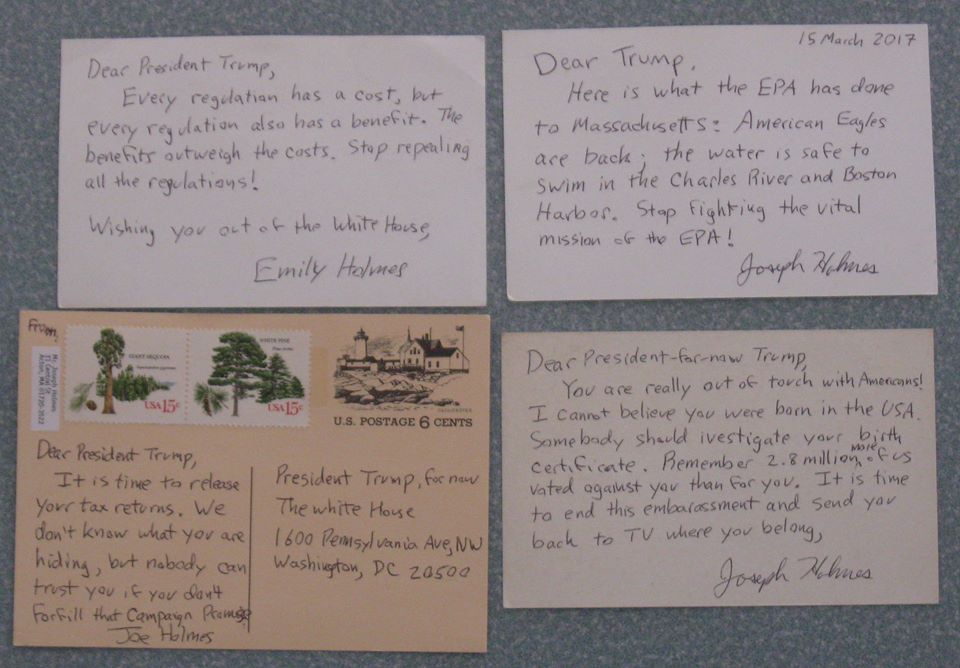 Dear President Trump,
Every regulation has a cost, but
every regulation also has a benefit. The
benefits outweigh the costs. Stop repealing
all the regulations!
Wishing you out of the White House,
Emily Holmes
15 March 2017
Dear Trump,
Here is what the EPA has done
to Massachusetts: American Eagles
are back; the water is safe to
swim in the Charles River and Boston
Harbor. Stop fighting the vital
mission of the EPA!
Joseph Holmes
From:
Joseph Holmes
Acton, MA 01720-3522
GIANT SEQUOIA
USA 15c
WHITE PINE
USA 15c
U.S. POSTAGE 6 CENTS
Dear President Trump,
It is time to release
your tax returns. We
don't know what you are
hiding, but nobody can
trust you if you don't
forfill that campaign Promise
Joe Holmes
President Trump, for now
The White House
1600 Pennsylvania Ave, NW
Washington, DC 20500
Dear President-for-now Trump,
You are really out of touch with Americans!
I cannot believe you were born in the USA.
Somebody should ivestigate your birth
certificate. Remember 2.8 million more of us
voted against you than for you. It is time
to end this embarassment and send you
back to TV where you belong,
Joseph Holmes